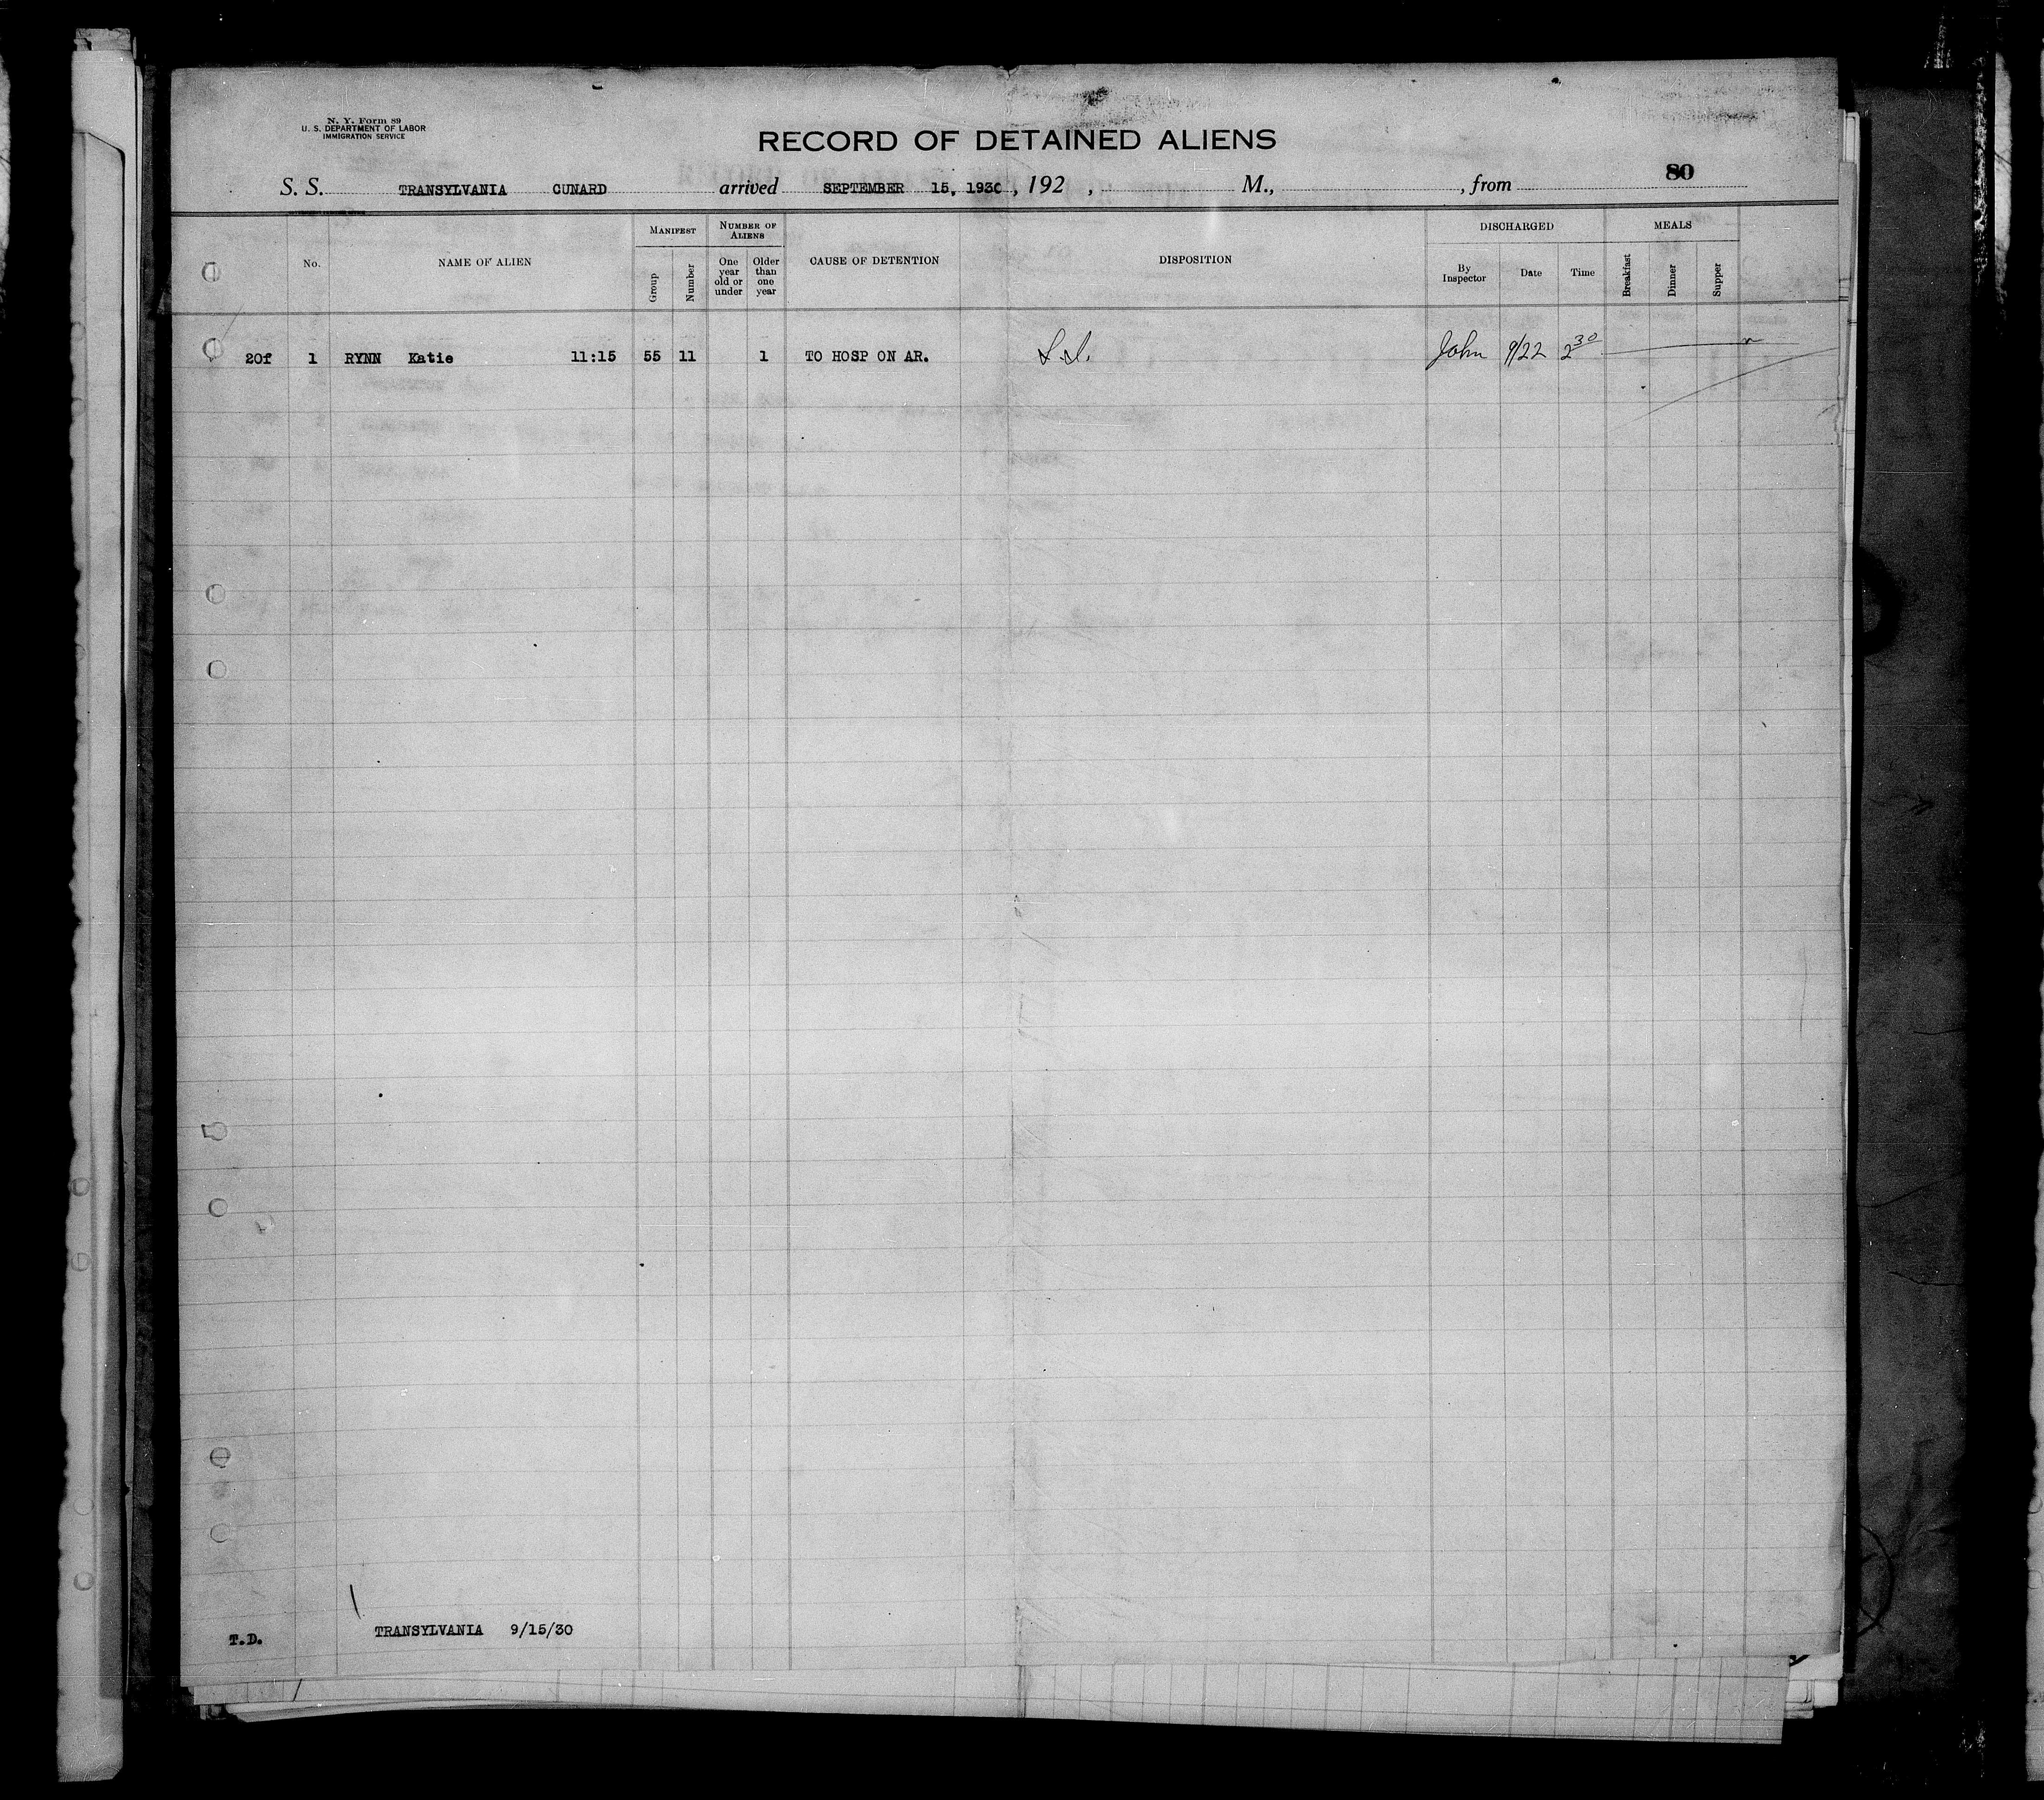 N. Y. Form 89
U. S. DEPARTMENT OF LABOR
IMMIGRATION SERVICE
RECORD OF DETAINED ALIENS
80
S. S. TRANSYLVANIA CUNARD arrived SEPTEMBER 15, 1930, 192 , M., , from
No. NAME OF ALIEN MANIFEST Group Number NUMBER OF ALIENS One year old or under Older than one year CAUSE OF DETENTION DISPOSITION DISCHARGED By Inspector Date Time MEALS Breakfast Dinner Supper
20f 1 RYNN Katie 11:15 55 11 1 TO HOSP ON AR. John 9/22 2 30
TRANSYLVANIA 9/15/30
T.D.